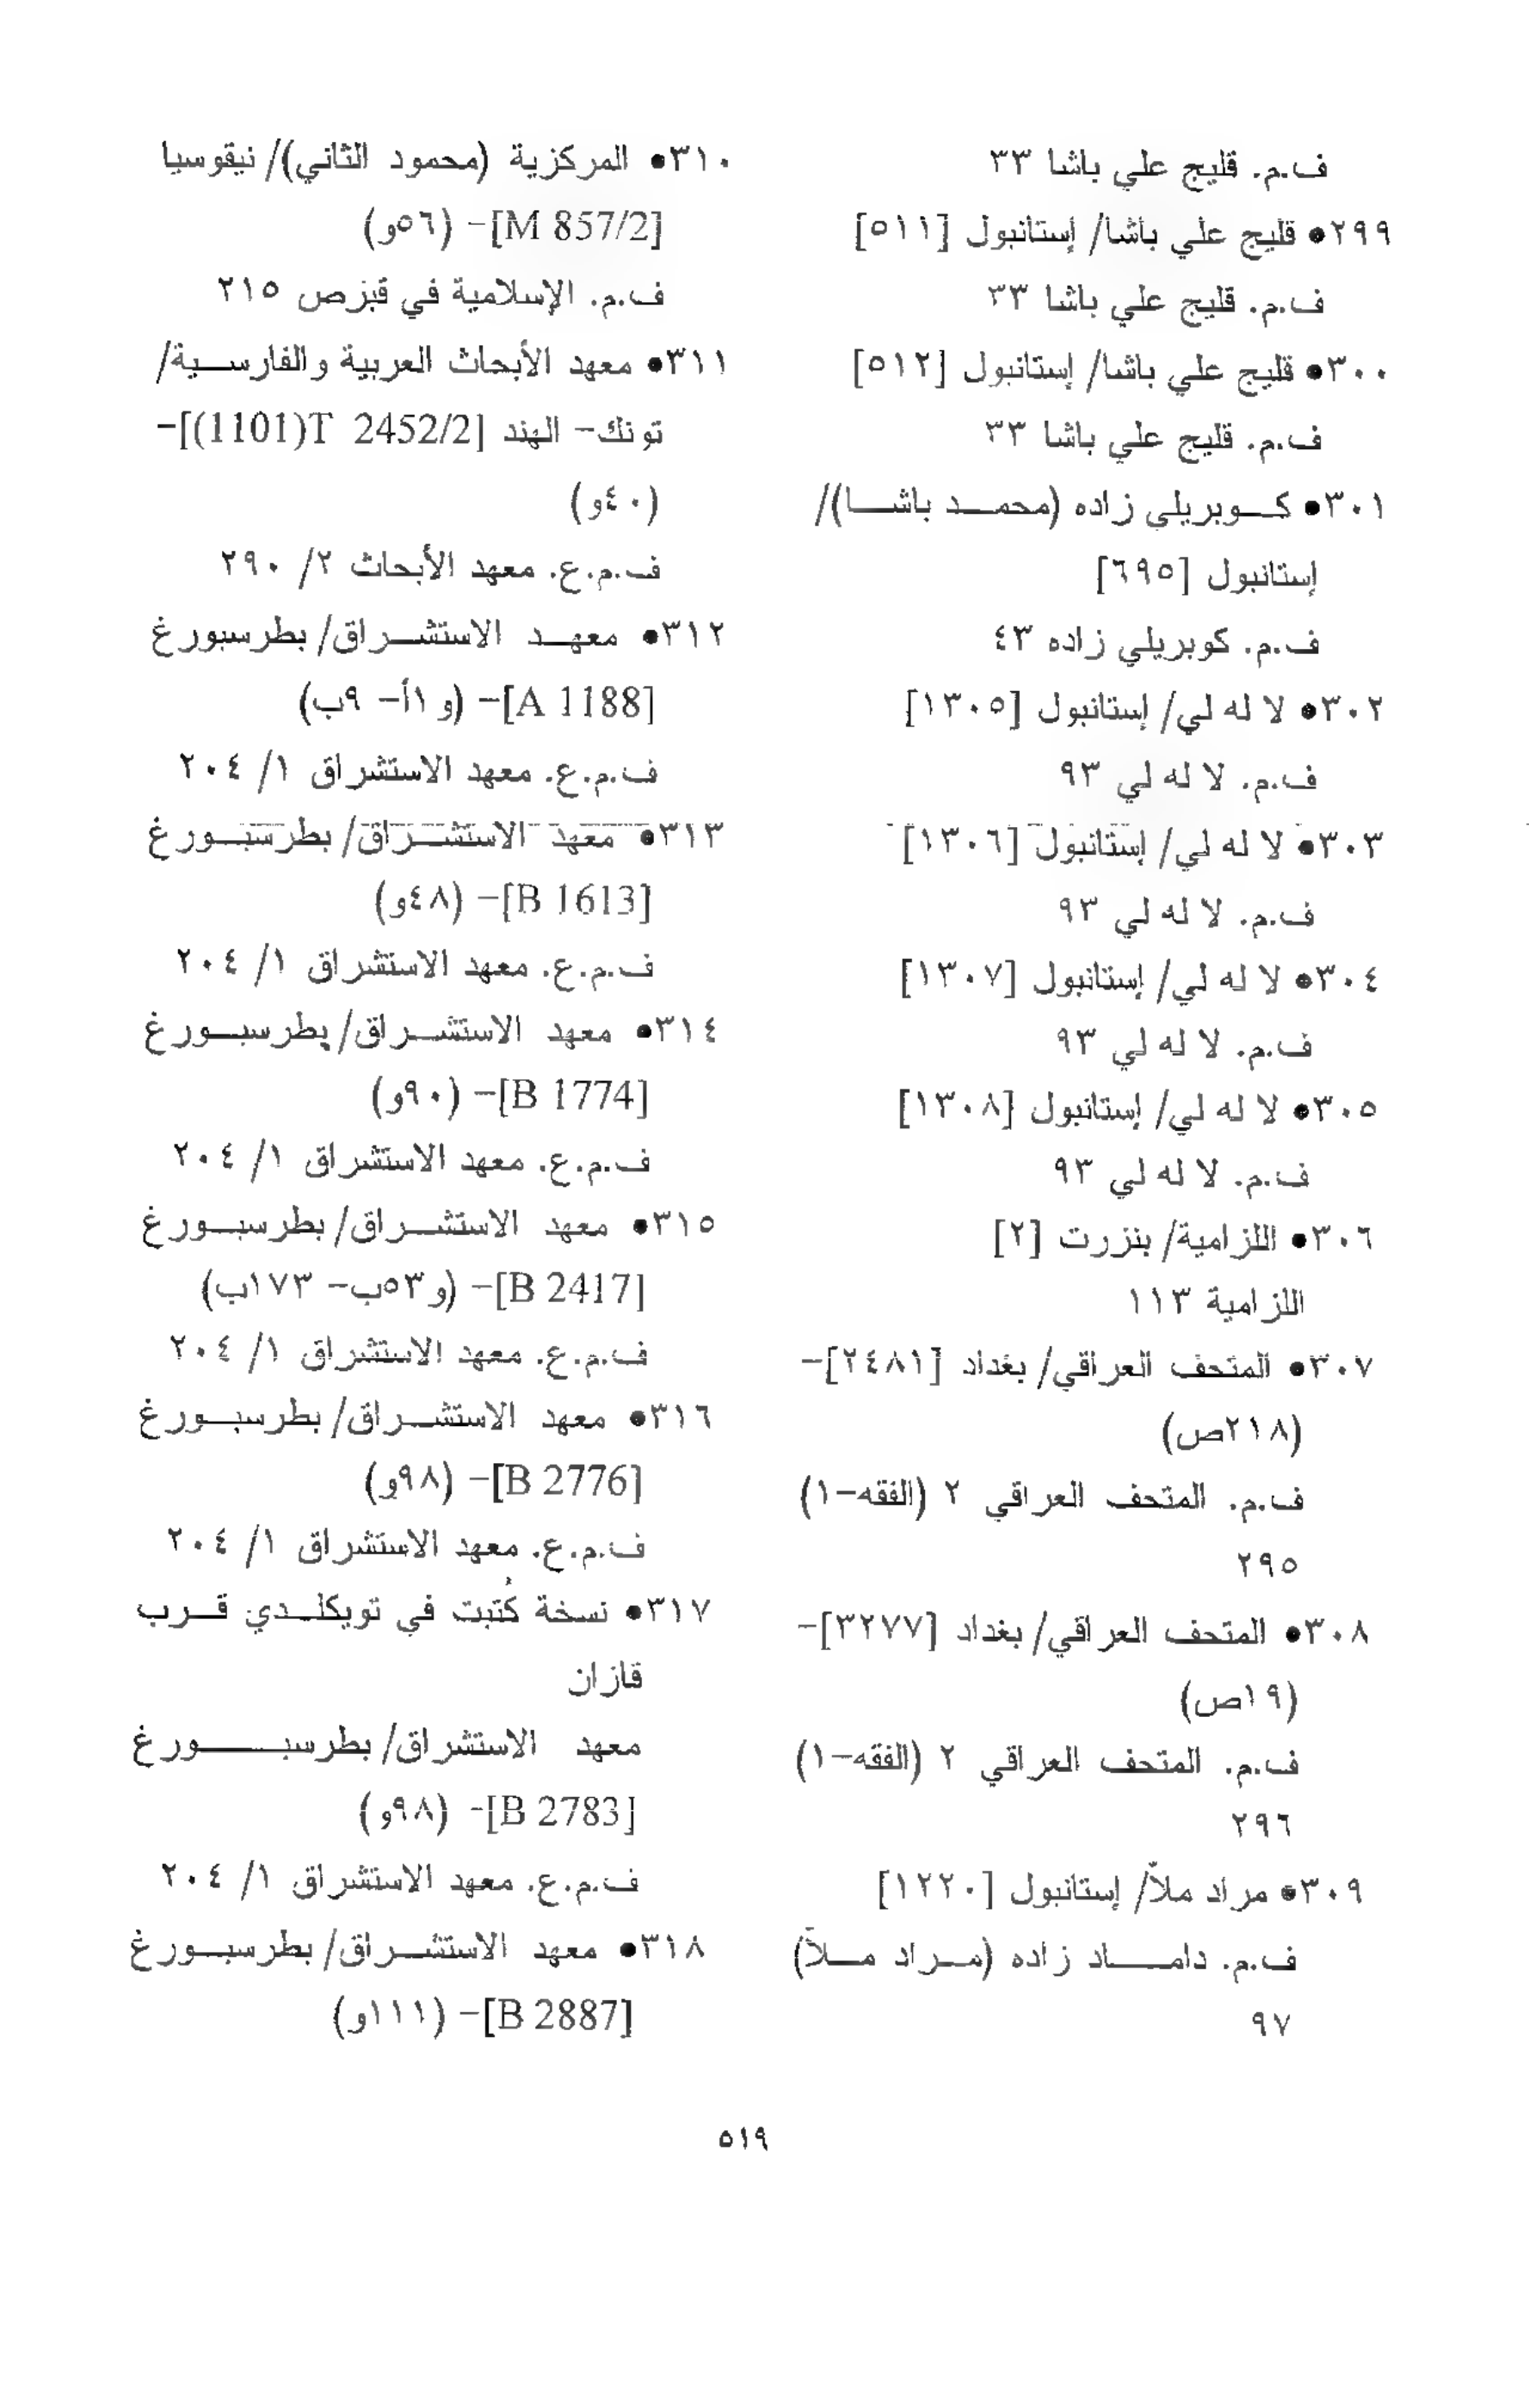 ف.م. قليج علي باشا ٣٣
٢٩٩• قليج علي باشا/ إستانبول [٥١١]
ف.م. قليج علي باشا ٣٣
٣٠٠• قليج علي باشا/ إستانبول [٥١٢]
ف.م. قليج علي باشا ٣٣
٣٠١• كوبريلي زاده (محمد باشا)/
إستانبول [٦٩٥]
ف.م. كوبريلي زاده ٤٣
٣٠٢• لا له لي/ إستانبول [١٣٠٥]
ف.م. لا له لي ٩٣
٣٠٣• لا له لي/ إستانبول [١٣٠٦]
ف.م. لا له لي ٩٣
٣٠٤• لا له لي/ إستانبول [١٣٠٧]
ف.م. لا له لي ٩٣
٣٠٥• لا له لي/ إستانبول [١٣٠٨]
ف.م. لا له لي ٩٣
٣٠٦• اللزامية/ بنزرت [٢]
اللزامية ١١٣
٣٠٧• المتحف العراقي/ بغداد [٢٤٨١]-
(٢١٨ص)
ف.م. المتحف العراقي ٢ (الفقه-١)
٢٩٥
٣٠٨• المتحف العراقي/ بغداد [٣٢٧٧]-
(١٩ص)
ف.م. المتحف العراقي ٢ (الفقه-١)
٢٩٦
٣٠٩• مراد ملاّ/ إستانبول [١٢٢٠]
ف.م. داماد زاده (مراد ملاّ)
٩٧
٣١٠• المركزية (محمود الثاني)/ نيقوسيا
[M 857/2]- (٥٦و)
ف.م. الإسلامية في قبرص ٢١٥
٣١١• معهد الأبحاث العربية والفارسية/
تونك- الهند [T 2452/2(1101)]-
(٤٠و)
ف.م.ع. معهد الأبحاث ٢/ ٢٩٠
٣١٢• معهد الاستشراق/ بطرسبورغ
[A 1188]- (و١أ- ٩ب)
ف.م.ع. معهد الاستشراق ١/ ٢٠٤
٣١٣• معهد الاستشراق/ بطرسبورغ
[B 1613]- (٤٨و)
ف.م.ع. معهد الاستشراق ١/ ٢٠٤
٣١٤• معهد الاستشراق/ بطرسبورغ
[B 1774]- (٩٠و)
ف.م.ع. معهد الاستشراق ١/ ٢٠٤
٣١٥• معهد الاستشراق/ بطرسبورغ
[B 2417]- (و٥٣ب- ١٧٣ب)
ف.م.ع. معهد الاستشراق ١/ ٢٠٤
٣١٦• معهد الاستشراق/ بطرسبورغ
[B 2776]- (٩٨و)
ف.م.ع. معهد الاستشراق ١/ ٢٠٤
٣١٧• نسخة كُتبت في تويكلدي قرب
قازان
معهد الاستشراق/ بطرسبورغ
[B 2783]- (٩٨و)
ف.م.ع. معهد الاستشراق ١/ ٢٠٤
٣١٨• معهد الاستشراق/ بطرسبورغ
[B 2887]- (١١١و)
٥١٩